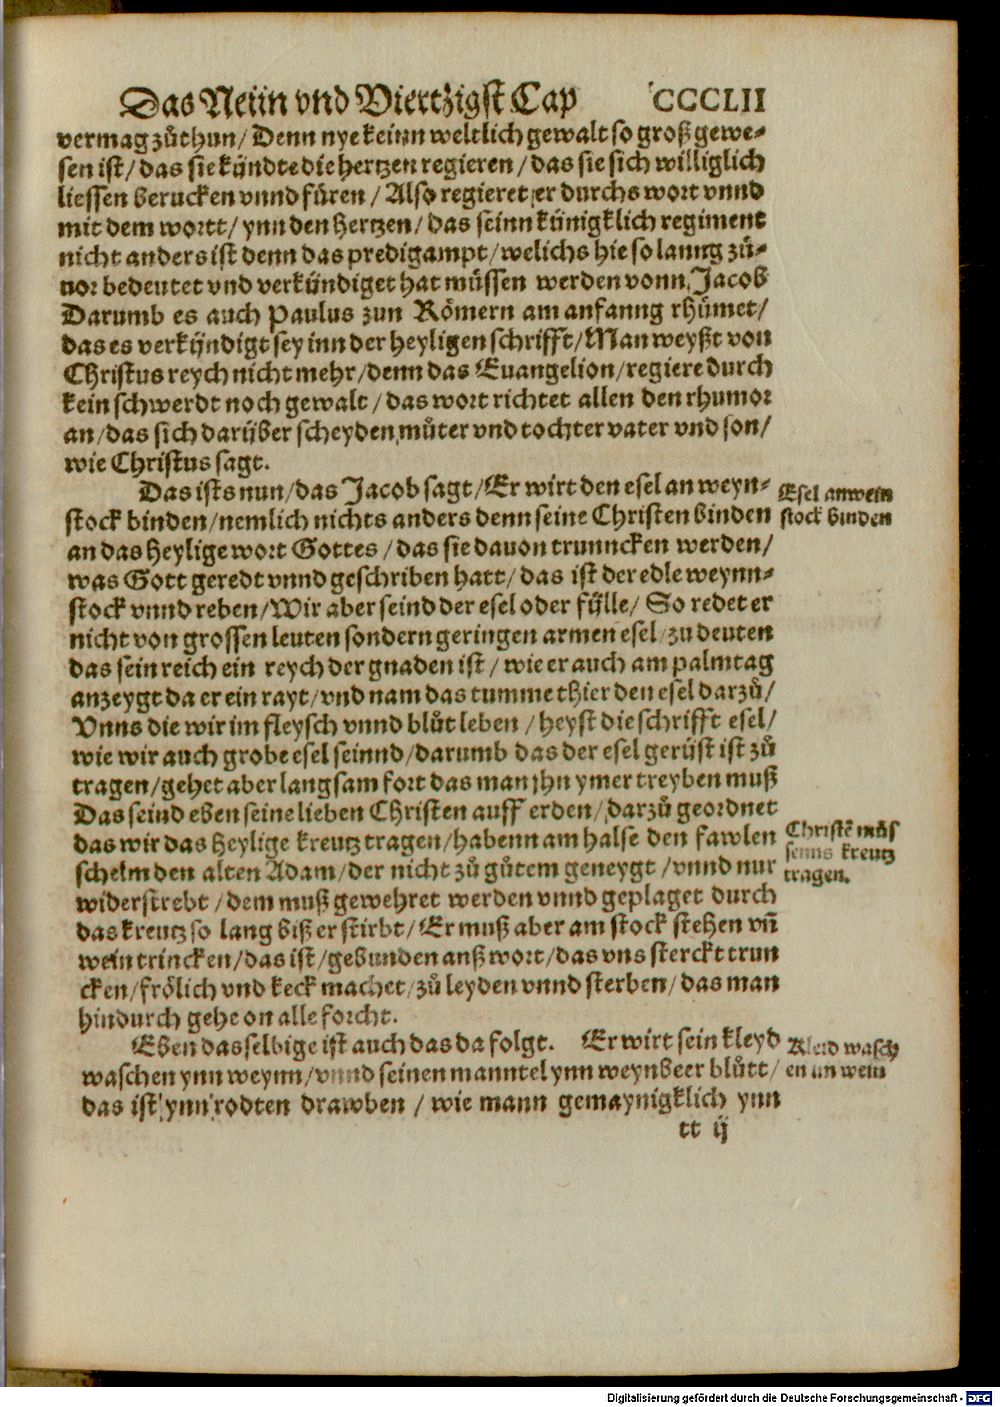 Das Neün vnd Viertzigst Cap CCCLII
vermag zůthun/ Denn nye keinn weltlich gewalt so groß gewe-
sen ist/ das sie kündte die hertzen regieren/ das sie sich williglich
liessen berucken vnnd füren/ Also regieret er durchs wort vnnd
mit dem wortt/ ynn den hertzen/ das seinn künigklich regiment
nicht anders ist denn das predigampt/ welichs hie so lanng zů-
uor bedeutet vnd verkündiget hat müssen werden vonn Jacob
Darumb es auch Paulus zun Römern am anfanng rhümet/
das es verkündigt sey inn der heyligen schrifft/ Man weyßt von
Christus reych nicht mehr/ denn das Euangelion/ regiere durch
kein schwerdt noch gewalt/ das wort richtet allen den rhumor
an/ das sich darüber scheyden můter vnd tochter vater vnd son/
wie Christus sagt.
Das ists nun/ das Jacob sagt/ Er wirt den esel an weyn-
stock binden/ nemlich nichts anders denn seine Christen binden
an das heylige wort Gottes/ das sie dauon trunncken werden/
was Gott geredt vnnd geschriben hatt/ das ist der edle weynn-
stock vnnd reben/ Wir aber seind der esel oder fülle/ So redet er
nicht von grossen leuten sondern geringen armen esel/ zu deuten
das sein reich ein reych der gnaden ist/ wie er auch am palmtag
anzeygt da er ein rayt/ vnd nam das tumme thier den esel darzů/
Vnns die wir im fleysch vnnd blůt leben/ heyst die schrifft esel/
wie wir auch grobe esel seinnd/ darumb das der esel gerüst ist zů
tragen/ gehet aber langsam fort das man jhn ymer treyben muß
Das seind eben seine lieben Christen auff erden/ darzů geordnet
das wir das heylige kreutz tragen/ habenn am halse den fawlen
schelm den alten Adam/ der nicht zů gůtem geneygt/ vnnd nur
widerstrebt/ dem muß gewehret werden vnnd geplaget durch
das kreutz so lang biß er stirbt/ Er muß aber am stock stehen vñ
wein trincken/ das ist/ gebunden anß wort/ das vns sterckt trun
cken/ frölich vnd keck machet/ zů leyden vnnd sterben/ das man
hindurch gehe on alle forcht.
Eben dasselbige ist auch das da folgt. Er wirt sein kleyd
waschen ynn weynn/ vnnd seinen manntel ynn weynbeer blůtt/
das ist ynn rodten drawben/ wie mann gemaynigklich ynn
tt ij
Esel anwein
stock binden
Christē můs
senns kreutz
tragen.
Kleid wasch
en inn wein
Digitalisierung gefördert durch die Deutsche Forschungsgemeinschaft - DFG